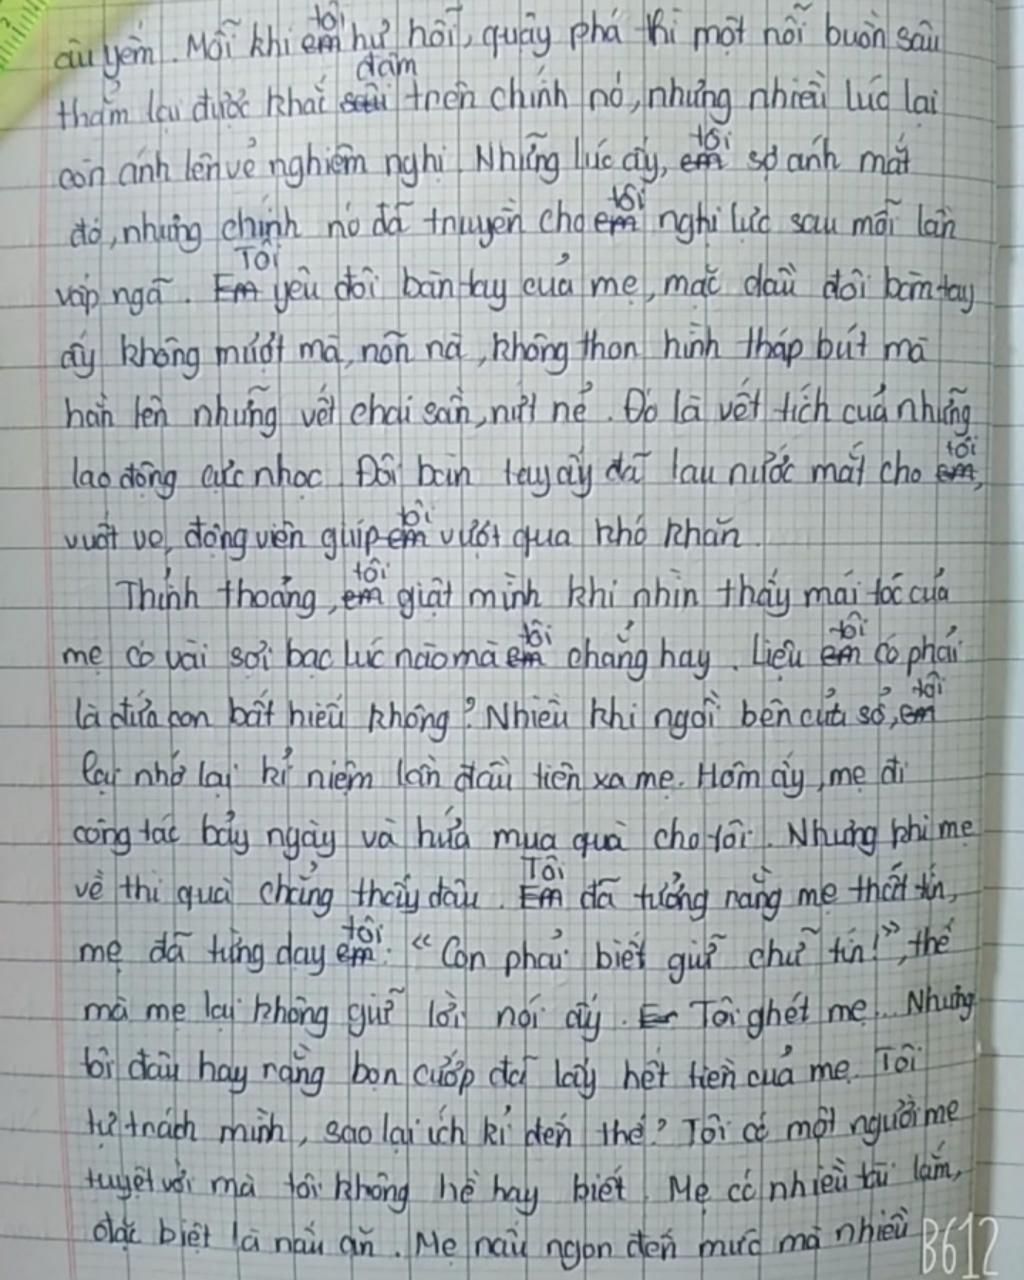 âu yếm. Mỗi khi em tôi hư hỗi, quậy phá thì một nỗi buồn sâu
thẳm lại được khai sâu đậm trên chính nó, nhưng nhiều lúc lại
còn ánh lên vẻ nghiêm nghị. Những lúc ấy, em tôi sợ ánh mắt
đó, nhưng chính nó đã truyền cho em tôi nghị lực sau mỗi lần
vấp ngã. Em Tôi yêu đôi bàn tay của mẹ, mặc dầu đôi bàn tay
ấy không mướt mà, nõn nà, không thon hình tháp bút mà
hằn lên những vết chai sần, nứt nẻ. Đó là vết tích của những
lao động cực nhọc. Đôi bàn tay ấy đã lau nước mắt cho em tôi,
vuốt ve, động viên giúp em tôi vượt qua khó khăn.
Thỉnh thoảng, em tôi giật mình khi nhìn thấy mái tóc của
mẹ có vài sợi bạc lúc nào mà em tôi chẳng hay. Liệu em tôi có phải
là đứa con bất hiếu không? Nhiều khi ngồi bên cửa sổ, em tôi
lại nhớ lại kỉ niệm lần đầu tiên xa mẹ. Hôm ấy, mẹ đi
công tác bảy ngày và hứa mua quà cho tôi. Nhưng khi mẹ
về thì quà chẳng thấy đâu. Em Tôi đã tưởng rằng mẹ thất tín,
mẹ đã từng dạy em tôi: "Con phải biết giữ chữ tín!", thế
mà mẹ lại không giữ lời nói ấy. E Tôi ghét mẹ... Nhưng
tôi đâu hay rằng bọn cướp đã lấy hết tiền của mẹ. Tôi
tự trách mình, sao lại ích kỉ đến thế? Tôi có một người mẹ
tuyệt vời mà tôi không hề hay biết. Mẹ có nhiều tài lắm,
đặc biệt là nấu ăn. Mẹ nấu ngon đến mức mà nhiều
B612